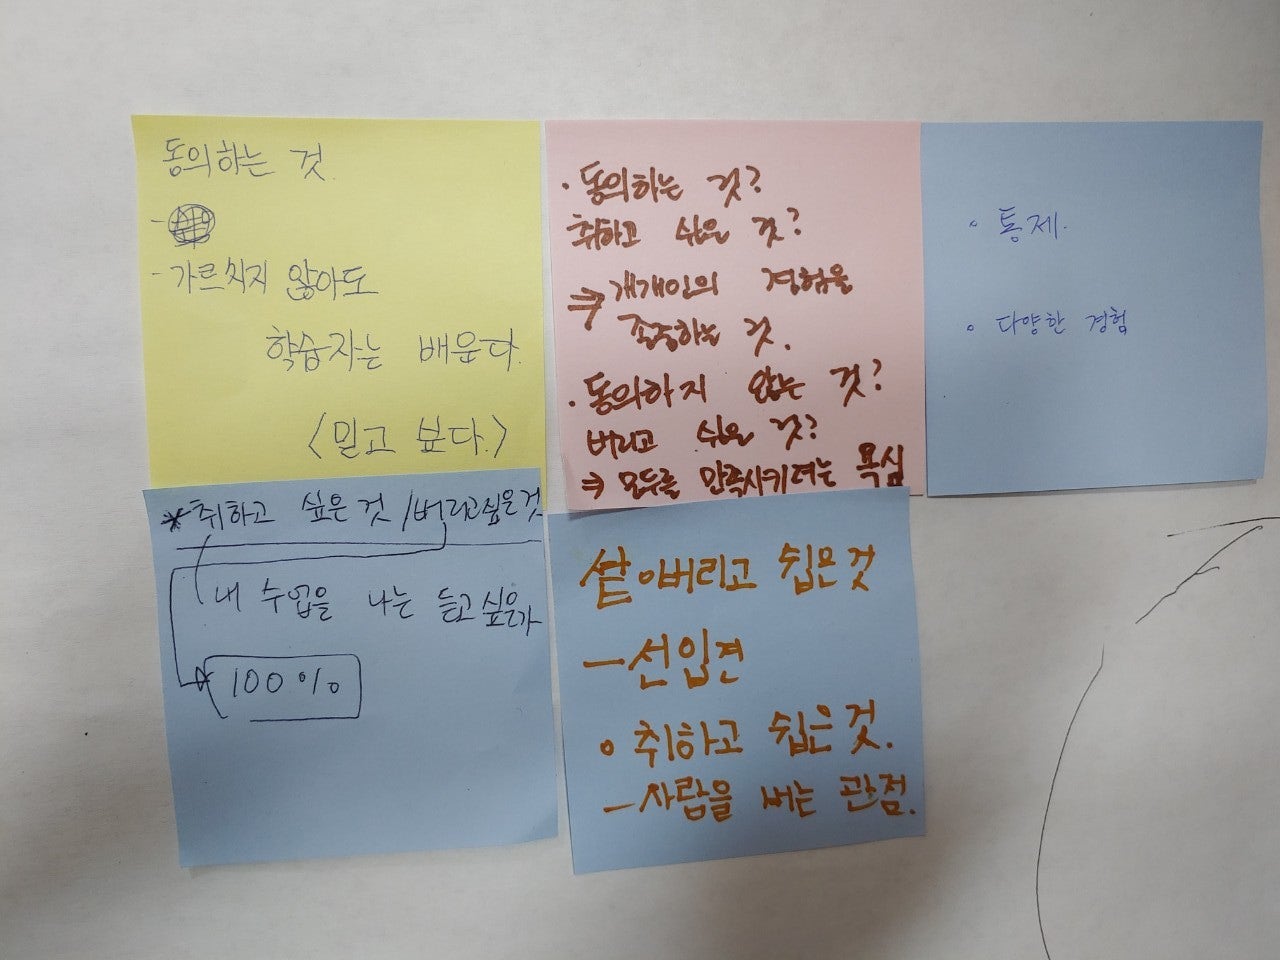 동의하는 것.
- 가르치지 않아도
학습자는 배운다.
<믿고 싶다.>
· 동의하는 것?
취하고 싶은 것?
⇒ 개개인의 경험을
존중하는 것.
· 동의하지 않는 것?
버리고 싶은 것?
⇒ 모두를 만족시키려는 욕심
◦ 통제.
◦ 다양한 경험
* 취하고 싶은 것 / 버리고싶은것
내 수업을 나는 듣고싶은가
100%
버리고 쉽은것
- 선입견
◦ 취하고 쉽은것.
- 사람을 보는 관점.